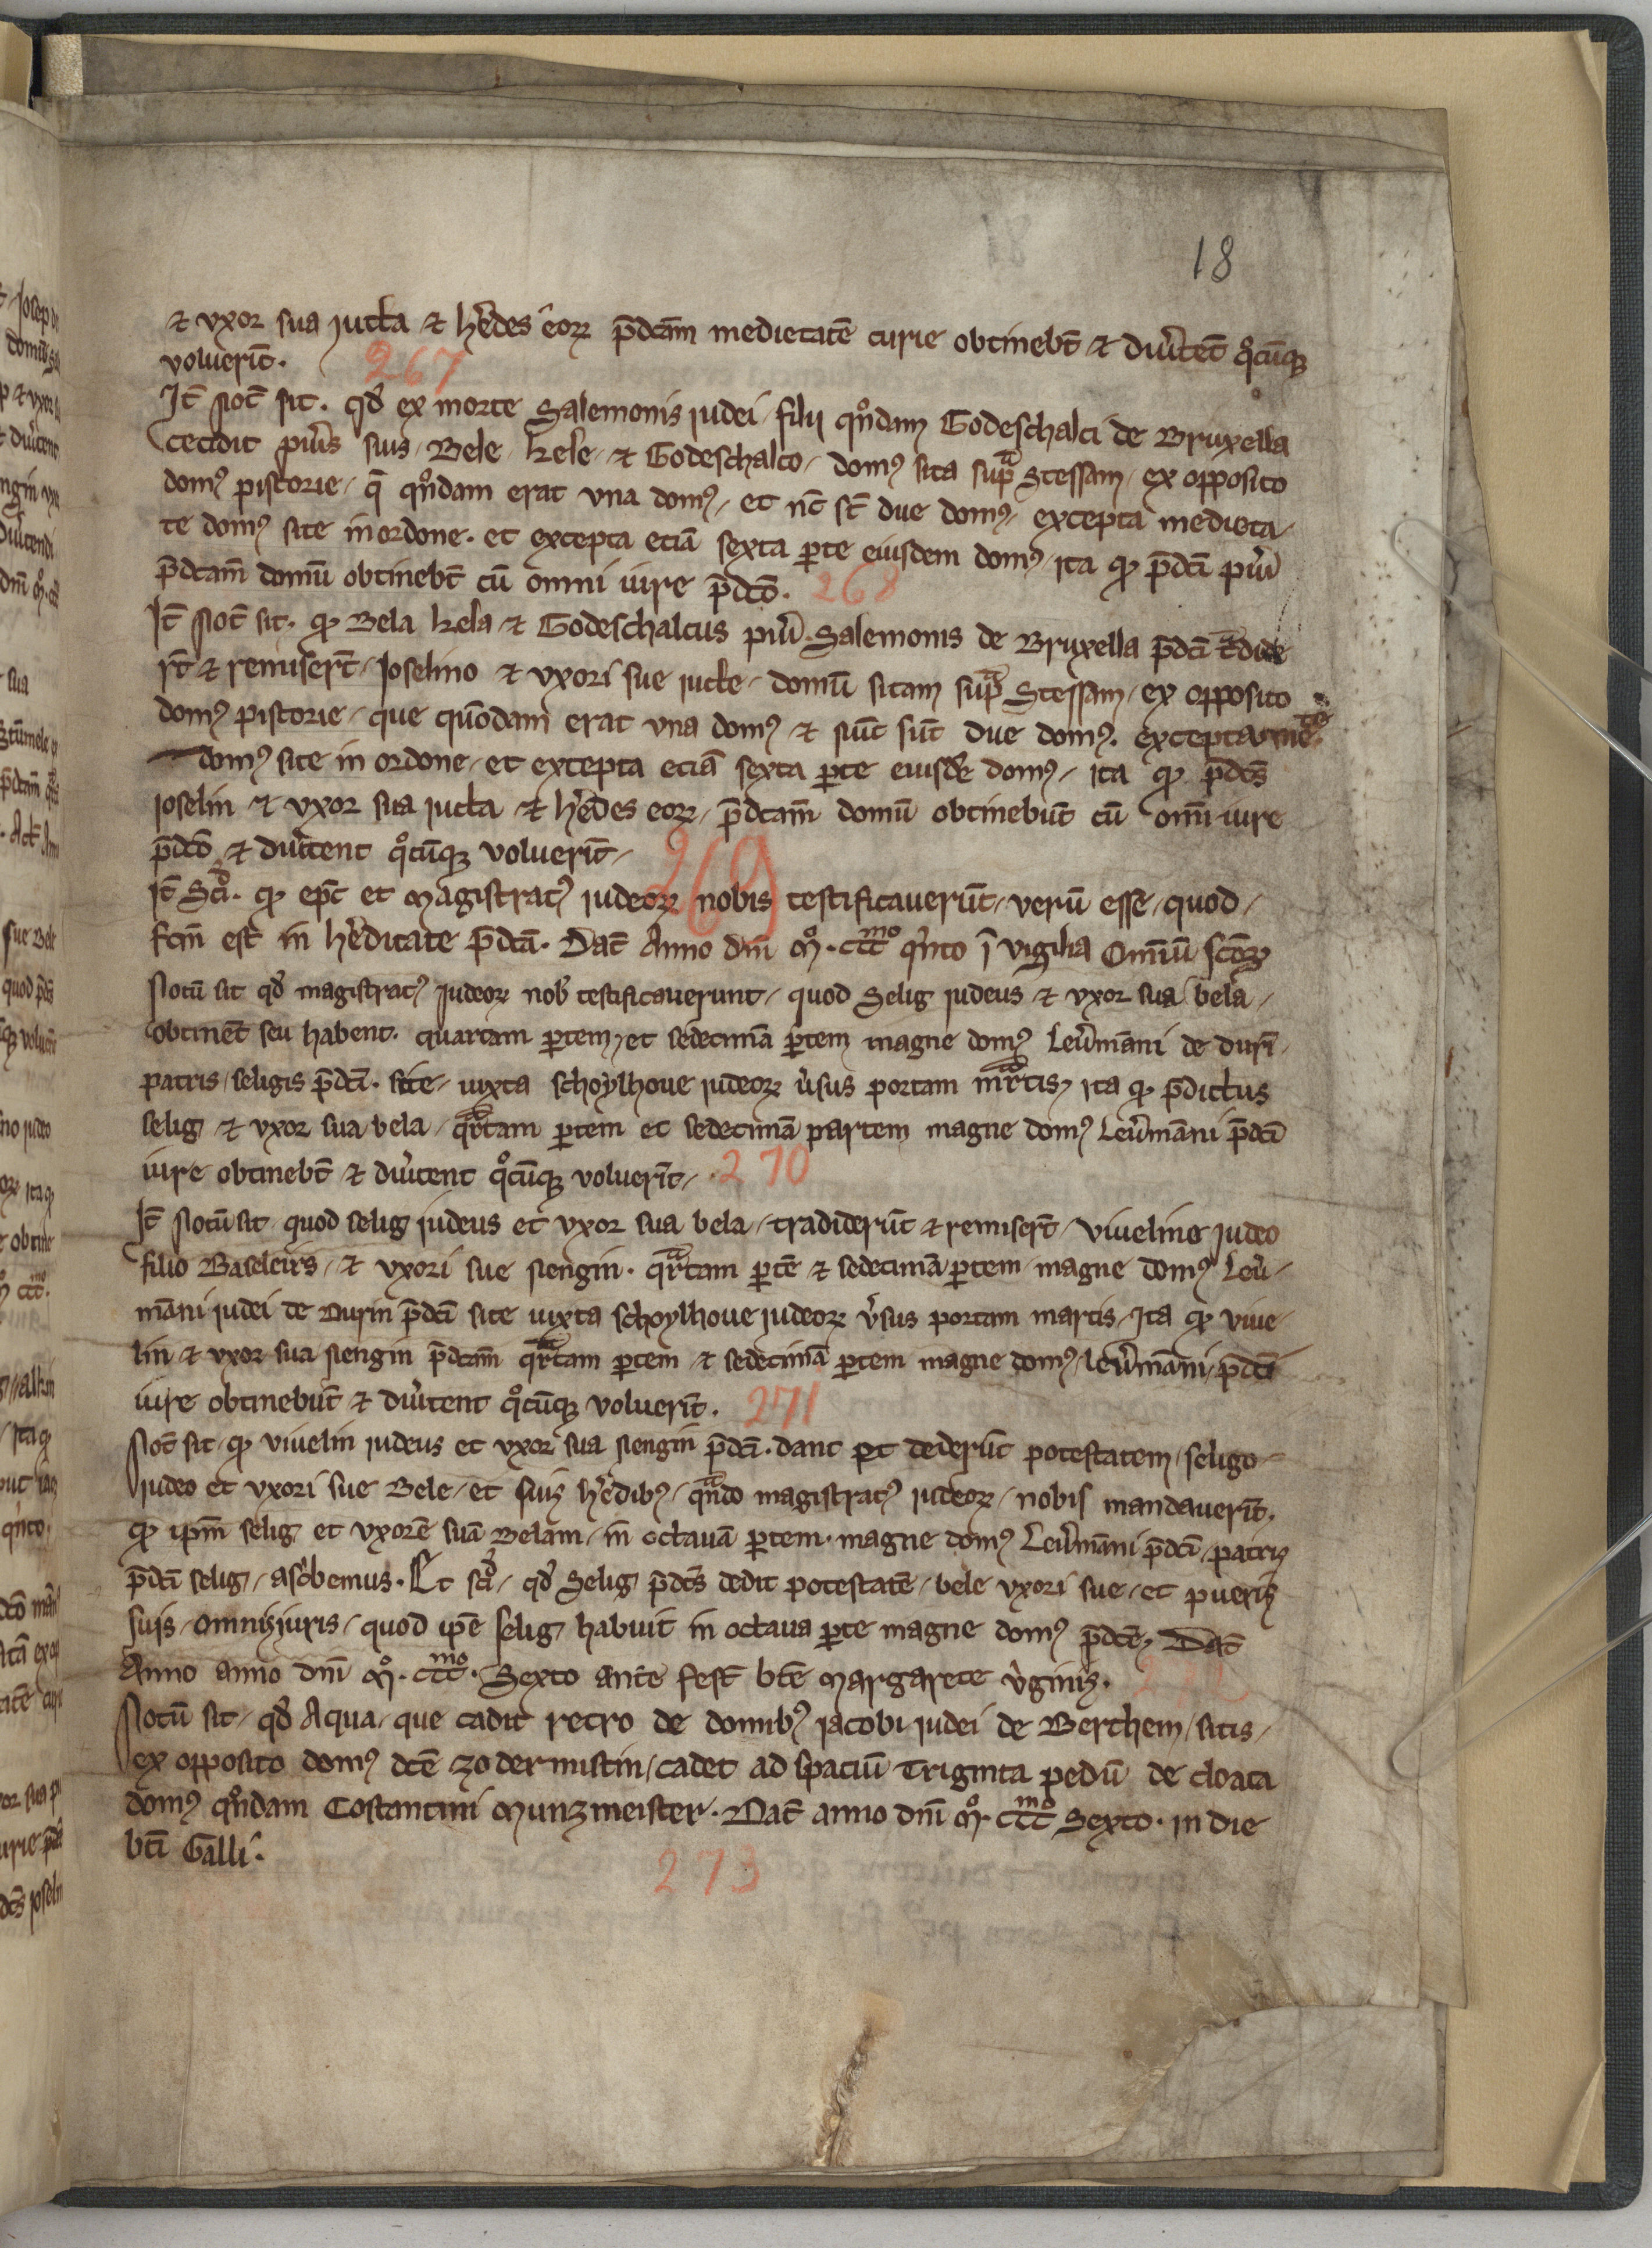 18
⁊ vxor sua jutta ⁊ h̓edes eoꝝ p̄dc̄am medietatē curie obtinebt̄ ⁊ diu̓tēt q̊cūqꝫ
voluerīt. 267
Jt̄ Not̄ sit. qd̓ ex morte Salemonis judei / filij qn̊dam Godeschalci de Bruxella
cecidit pu̓is suis / Bele / kele / ⁊ Godeschalco / domꝰ sita supᵃ Stessam / ex opposito
domꝰ pistorie / q̄ qn̊dam erat vna domꝰ / et nc̄ st̄ due domꝰ / excepta medieta /
te domꝰ site in ordone. et excepta eciā sexta ꝑte eiusdem domꝰ / ita qꝫ p̄dc̄i pu̓i
p̄dc̄am domū obtinebt̄ cū omni iure p̄dc̄o. 268
Jt̄ Not̄ sit. qꝫ Bela kela ⁊ Godeschalcus pu̓i. Salemonis de Bruxella p̄dc̄i t̄dide
rt̄ ⁊ remisert̄ / Joselino ⁊ vxori sue jutte / domū sitam supᵃ Stessam / ex opposito
domꝰ pistorie / que quōdam erat vna domꝰ ⁊ nūc sūt due domꝰ. excepta me. te
domꝰ site in ordone / et excepta eciā sexta ꝑte eiusdē domꝰ / ita qꝫ p̄dc̄s
joselin ⁊ vxor sua jutta ⁊ h̓edes eoꝝ / p̄dc̄am domū obtinebūt cū om̄i iure
p̄dc̄o ⁊ diu̓tent q̊cūqꝫ voluerīt /
269
Jt̄ Sci̓d. qꝫ ep̄c et Magistratꝰ judeoꝝ nobis testificauerūt / verū esse / quod /
fcm̄ est in h̓editate p̄dc̄a. Dat̄ Anno dn̄i M̊. CCC mo qi̓nto ī vigilia Omīū sc̄oꝝ
Notū sit qd̓ magistratꝰ Judeoꝝ nob̓ testificauerunt / quod Selig judeus ⁊ vxor sua bela /
obtinēt seu habent. quartam ꝑtem / et sedecimā ꝑtem magne domꝰ Leu̓māni de durī /
patris / seligis p̄dc̄i. site / iuxta schoylhoue judeoꝝ u̓sus portam mᵃrtis / ita qꝫ p̄dictus
selig ⁊ vxor sua bela / qᵃrtam ꝑtem et sedecimā partem magne domꝰ Leu̓māni p̄dc̄i
iure obtinebt̄ ⁊ diu̓tent q̊cūqꝫ voluerīt / . 270
Jt̄ Notū sit quod selig judeus et vxor sua bela / tradiderūt ⁊ remisert̄ / viuelino judeo
filio Baseleirs / ⁊ vxori sue Nengin. qᵃrtam ꝑtē ⁊ sedecimā ꝑtem / magne domꝰ Leu̓ /
māni judei de Durin p̄dc̄i site iuxta schoylhoue judeoꝝ v̓sus portam martis / Jta qꝫ viue /
lin ⁊ vxor sua Nengin p̄dc̄am qᵃrtam ꝑtem ⁊ sedecimā ꝑtem magne domꝰ / leu̓māni / p̄dc̄i
iure obtinebūt ⁊ diu̓tent q̊cūqꝫ voluerīt. 271
Not̄ sit / qꝫ viuelin judeus et vxor sua Nengin p̄dc̄i. dant et dederūt potestatem / seligo /
judeo et vxori sue Bele / et suis h̓edibꝰ / qᵃndo magistratꝰ judeoꝝ / nobis mandauerīt.
qꝫ ipm̄ selig et vxorē suā Belam / in octauā ꝑtem. magne domꝰ Leu̓māni p̄dc̄i / patris
p̄dc̄i selig / asc̓bemus. Et sci̓d / qd̓ Selig p̄dc̄s dedit potestatē / bele vxori sue / et pueris
suis / omnis juris / quod ip̄e selig habuit in octaua ꝑte magne domꝰ p̄dc̄e / Dat̄
Anno anno dn̄i M̊. CCC mo. Sexto ante fest̄ bt̄e Margarete v̓ginis. 272
Notū sit / qd̓ Aqua / que cadit retro de domibꝰ jacobi judei de Berchem / sitis /
ex opposito domꝰ dc̄e zo der mistin / cadet ad spaciū Triginta pedū de cloaca
domꝰ qn̊dam Costantini Munzmeister. Dat̄ anno dn̄i M̊. CCC mo Sexto. in die
bt̄i Galli.
273